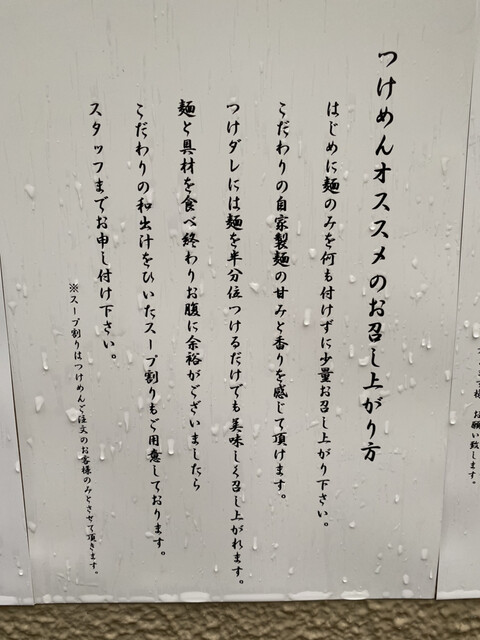 つけめんオススメのお召し上がり方
はじめに麺のみを何も付けずに少量お召し上がり下さい。
こだわりの自家製麺の甘みと香りを感じて頂けます。
つけダレには麺を半分位つけるだけでも美味しく召し上がれます。
麺と具材を食べ終わりお腹に余裕がございましたら
こだわりの和出汁をひいたスープ割りもご用意しております。
スタッフまでお申し付け下さい。
※スープ割りはつけめんご注文のお客様のみとさせて頂きます。
お願い致します。